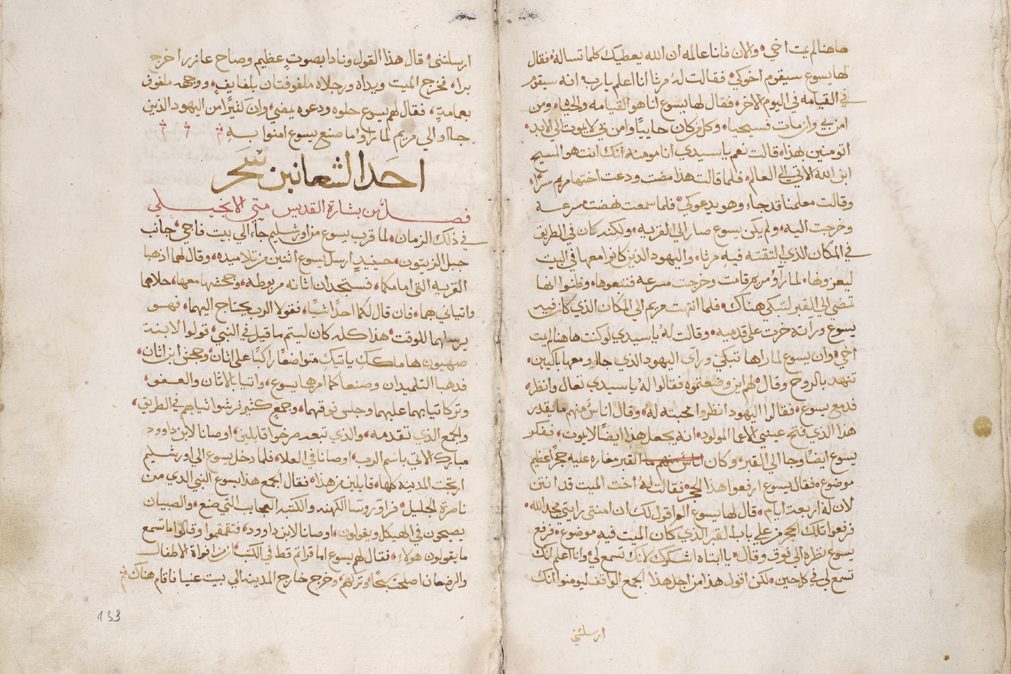 هاهنا لم يمت اخي والان فانا عالمه ان الله يعطيك كلما تساله فقال
لها يسوع سيقوم اخوكي فقالت له مرثا انا اعلم يارب انه سيقوم
في القيامه في اليوم الاخر فقال لها يسوع انا هو القيامه والحياه ومن
امن بي وان مات فسيحيا وكلمن كان حايبا وامن بي لا يموت الي الابد
اتومنين بهذا قالت نعم ياسيدي انا مومنه انك انت هو المسيح
ابن الله الاتي الي العالم فلما قالت هذا مضت ودعت اختها مريم سرا
وقالت معلمنا قد جا وهو يدعوكي فلما سمعت نهضت مسرعة
وخرجت اليه ولم يكن يسوع صار الي القريه ولكنه كان في الطريق
في المكان الذي التقته فيه مرثا واليهود الذين كانوا معها في البيت
ليعزونها لما راو مريم قامت وخرجت مسرعة فتبعوها وظنوا انها
تمضي الي القبر لتبكي هناك فلما انتهت مريم الي المكان الذي كان فيه
يسوع وراته خرت علي قدميه وقالت له ياسيدي لو كنت هاهنا لم يمت
اخي وان يسوع لما راها تبكي وراي اليهود الذي جاو معها باكين
تنهد بالروح وقال لهم اين وضعتموه فقالوا له ياسيدي تعال وانظر
فدمع يسوع فقالوا اليهود انظروا محبته له وقال اناس منهم ما يقدر
هذا الذي فتح عيني الاعما المولود انه يجعل هذا ايضا لا يموت ففكر
يسوع ايضا وجا الي القبر وكان القبر مغاره عليه حجر عظيم
موضوع فقال يسوع ارفعوا هذا الحجر فقالت له اخت الميت قد انتن
لان له اربعة ايام قال لها يسوع الم اقول لك ان امنتي رايتي مجد الله
فرفعوا تلك الحجر من علي باب القبر الذي كان الميت فيه موضوع فرفع
يسوع نظره الي فوق وقال يا ابتاه اشكرك لانك تسمع لي وانا اعلم انك
تسمع لي في كل حين ولكن اقول هذا من اجل هذا الجمع الواقف ليومنوا انك
ارسلتني
ارسلتني قال هذا القول ونادا بصوت عظيم وصاح عازر اخرج
برا فخرج الميت ويداه ورجلاه ملفوفتان بلفايف ووجهه ملفوف
بعمامة فقال لهم يسوع حلوه ودعوه يمضي وان كثيرا من اليهود الذين
جاوا الي مريم لما راوا ما صنع يسوع امنوا به
احد الشعانين سحر
فصل من بشارة القديس متي الانجيلي
في ذلك الزمان لما قرب يسوع من اورشليم جا الي بيت فاجي جانب
جبل الزيتون حينيد ارسل يسوع اثنين من تلاميده وقال لهما ادهبا
القريه التي امامكما فستجدان اتانه مربوطه وجحشها معها حلاهما
واتياني بهما فان قال لكما احدا شيا فقولا الرب يحتاج اليهما فهو
يرسلهما للوقت هذا كله كان ليتم ما قيل في النبي قولوا لابنت
صهيون ها ملكك ياتيك متواضعا راكبا علي اتان وجحش ابن اتان
فدهبا التلميدان وصنعا كما امرهما يسوع واتيا بالاتان والعفو
وتركا ثيابهما عليهما وجلس فوقهما وجمع كثير فرشوا ثيابهم في الطريق
والجمع الذي تقدمه والذي تبعه صرخوا قايلين اوصانا لابن داوود
مبارك الاتي باسم الرب اوصانا في العلا فلما دخل يسوع الي اورشليم
ارتجت المدينه كلها قايلين من هذا فقال الجمع هذا يسوع النبي الذي من
ناصرة الجليل فراو روسا الكهنه والكتبه العجايب التي صنع والصبيان
يصيحون في الهيكل ويقولون اوصانا لابن داوود فتقمقموا وقالوا ما تسمع
ما يقولون هولاء فقال لهم يسوع اما قراتم قط في الكتب ان من افواه الاطفال
والرضعان اصلحت سبحا وتركهم وخرج خارج المدينه الي بيت عنيا فاقام هناك
133